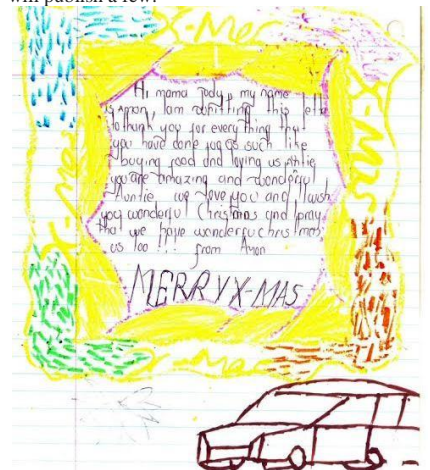 will publish a few.
X-Mas
X-Mas
X-Mas
X-Mas
Hi mama Jody, my name
is Amon, Iam writting this lette
to thank you for every thing that
you have done for us such like
buying food and loving us Antie
you are amazing and wonderful
Auntie we love you and I wish
you wonderful Christmas and pray
that we have wonderfuchrismas,
us too !!! from Amon
MERRY X-MAS